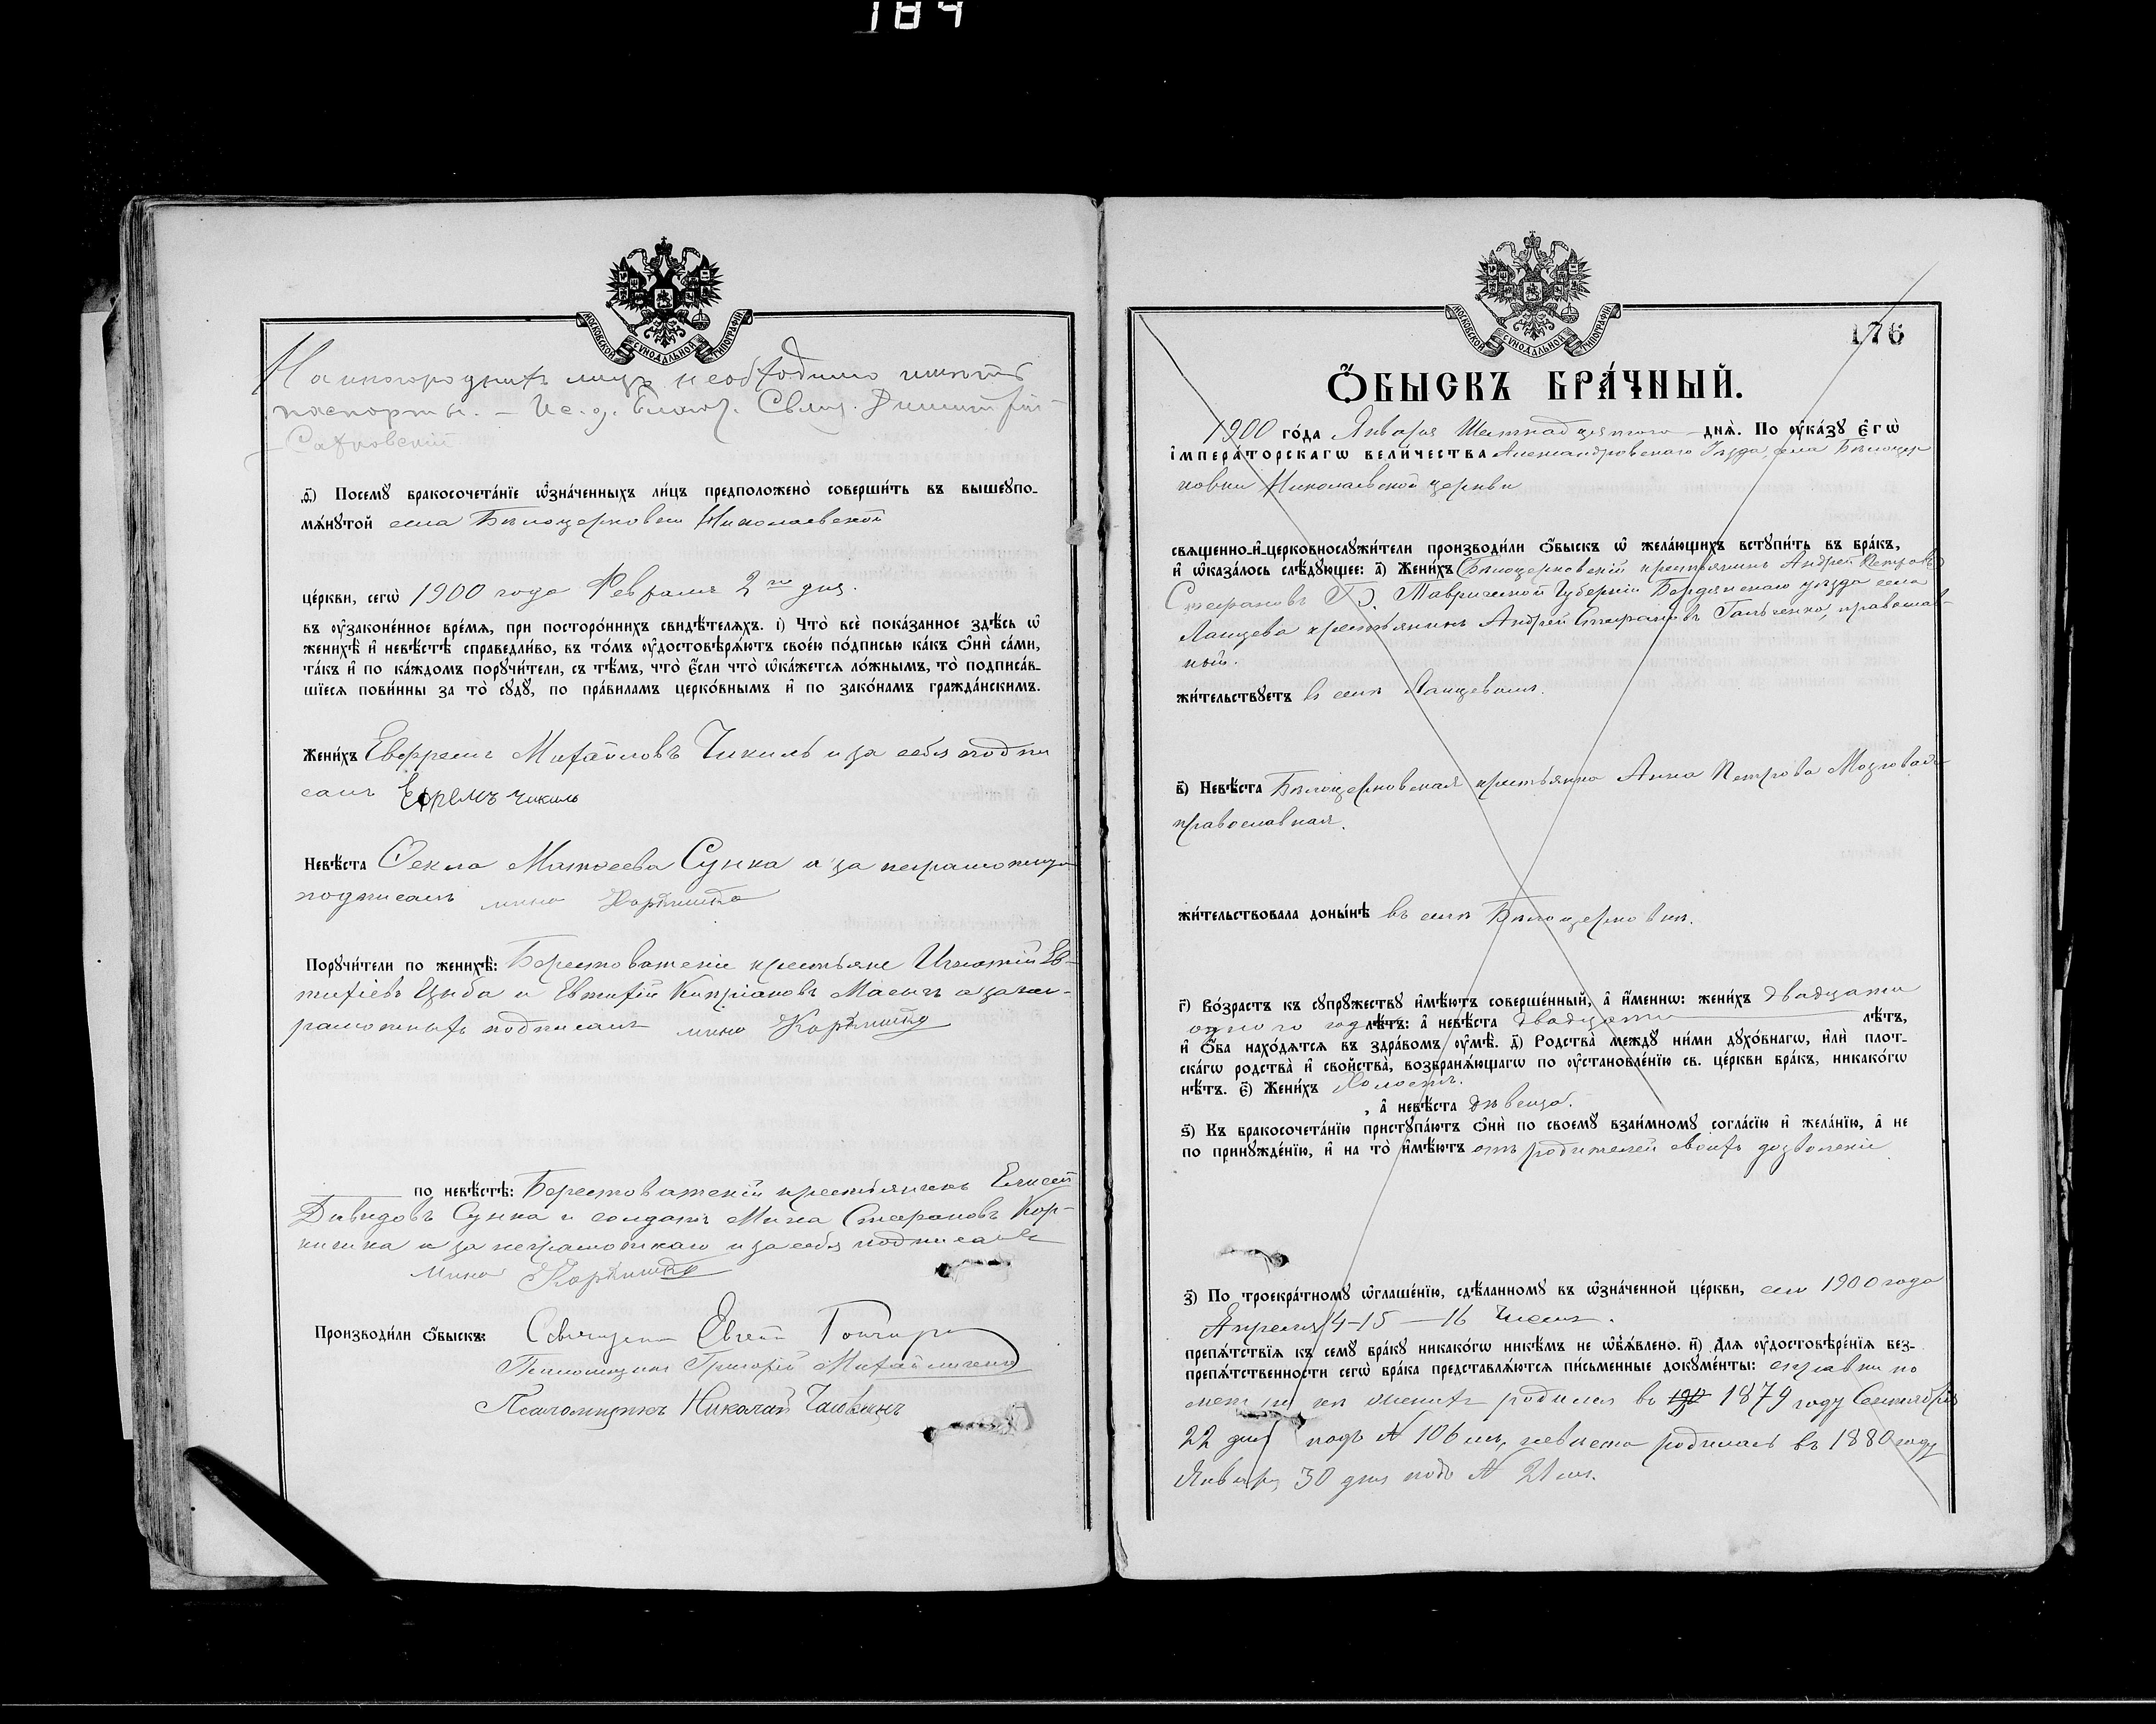 184
МОСКОВСКОЙ СУНОДАЛЬНОЙ ТИПОГРАФІИ
На иногороднихъ лицъ необходимо имѣть
паспорты. – Ис. д. Благоч. Свящ. Димитрій
Сахновскій
Посемꙋ бракосочета́нїе ѡ҆зна́ченныхъ ли́цъ предположено̀ соверши́ть въ вышеꙋпо-
мѧ́нꙋтой села Бѣлоцерковки Николаевской
це́ркви, сегѡ̀ 1900 года Февраля 2го дня.
въ ᲂу҆зако́ненное вре́мѧ, при посторо́ннихъ свидѣ́телѧхъ. і҃) Что̀ всѐ пока́занное здѣ́сь ѡ҆
женихѣ̀ и҆ невѣ́стѣ справедли́во, въ то́мъ ᲂу҆достовѣрѧ́ютъ свое́ю по́дписью ка́къ ѻ҆нѝ са́ми,
та́къ и҆ по ка́ждомъ порꙋчи́тели, съ тѣ́мъ, что̀ є҆́сли что̀ ѡ҆ка́жетсѧ ло́жнымъ, то̀ подписа́в-
шїесѧ пови́нны за то̀ сꙋдꙋ̀, по пра́виламъ церко́внымъ и҆ по зако́намъ гражда́нскимъ.
Жени́хъ Евфремъ Михайловъ Чикиль и за себя подпи
салъ Ефремъ Чикиль
Невѣ́ста Ѳекла Матѳеева Сушка а за неграмотную
подписалъ Мина
Порꙋчи́тели по женихѣ̀: Берестоватскіе крестьяне Игнатій Ев-
тихіевъ Цыба и Евтихій Кипріановъ а за нег-
рамотныхъ подписалъ Мина
по невѣ́стѣ: Берестоватскій крестьянинъ Елисей
Давидовъ Сушка и солдатъ Мина Стефановъ Кор-
и за неграмотнаго и за себя подписался
Мина
Производи́ли ѻ҆́быскъ: Священникъ Евгеній Гончаровъ
Григорій Михайличенко
Псаломщикъ Николай
МОСКОВСКОЙ СУНОДАЛЬНОЙ ТИПОГРАФІИ
176
Ѻ҆́БЫСКЪ БРА́ЧНЫЙ.
1900 го́да Января Шестнадцятого днѧ̀. По ᲂу҆ка́зꙋ Є҆гѡ̀
І҆мпера́торскагѡ Вели́чества Александровскаго Уѣзда, села Бѣлоцер
ковки Николаевской церкви
свѧще́нно-и҆-церковнослꙋжи́тели производи́ли ѻ҆́быскъ ѡ҆ жела́ющихъ встꙋпи́ть въ бра́къ,
и҆ ѡ҆каза́лось слѣ́дꙋющее: а҃) Жени́хъ (Бѣлоцерковскій крестьянинъ Андрей Петровъ)
Стефановъ Г. Таврической Губерніи Бердянскаго уѣзда села
Ланцева крестьянинъ Андрей Стефановъ Гальченко, православ-
ной.
жи́тельствꙋетъ въ селѣ Ланцевомъ.
в҃) Невѣ́ста Бѣлоцерковская крестьянка Анна Петрова
православная.
жи́тельствовала доны́нѣ въ селѣ Бѣлоцерковки.
г҃) Во́зрастъ къ сꙋпрꙋ́жествꙋ и҆мѣ́ютъ соверше́нный, а҆ и҆́менно: жени́хъ двадцати
одного год лѣ́тъ: а҆ невѣ́ста двадцати лѣ́тъ,
и҆ ѻ҆́ба нахо́дѧтсѧ въ здра́вомъ ᲂу҆мѣ̀. д҃) Родства̀ междꙋ ни́ми дꙋхо́внагѡ, и҆лѝ плот-
ска́гѡ родства̀ и҆ сво́йства̀, возбранѧ́ющагѡ по ᲂу҆становле́нїю св. це́ркви бра́къ, никако́гѡ
нѣ́тъ. є҃) Жени́хъ Холостъ.
, а҆ невѣ́ста дѣвица.
ѕ҃) Къ бракосочета́нїю пристꙋпа́ютъ ѻ҆нѝ по своемꙋ̀ взаи́мномꙋ согла́сїю и҆ жела́нїю, а҆ не
по принꙋжде́нїю, и҆ на то̀ и҆мѣ́ютъ отъ родителей своихъ дозволеніе
з҃) По троекра́тномꙋ ѡ҆глаше́нїю, сдѣ́ланномꙋ въ ѡ҆зна́ченной це́ркви, сего 1900 года
Апреля 14–15 – 16 Чиселъ.
препѧ́тствїѧ къ семꙋ̀ бра́кꙋ никако́гѡ никѣ́мъ не ѡ҆б̾ѧ́влено. и҃) Для ᲂу҆достовѣре́нїѧ без-
препѧ́тственности сегѡ̀ бра́ка представлѧ́ютсѧ пи́сьменные докꙋме́нты: справки по
женихъ родился въ 1879 году Сентября
22 дня подъ № 106 мъ, невеста родилась въ 1880 году
Января 30 дня подъ № 21 мъ.